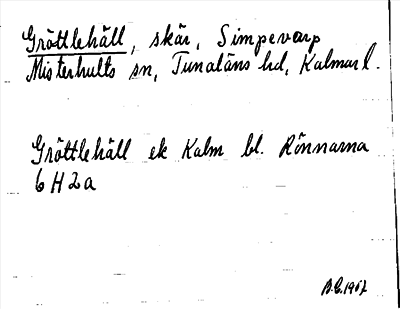 Gröttlehäll, skär, Simpevarp
Misterhults sn, Tunaläns hd, Kalmar l.
Gröttlehäll ek Kalm bl. Rönnarna
6 H 2 a
B.E. 1967